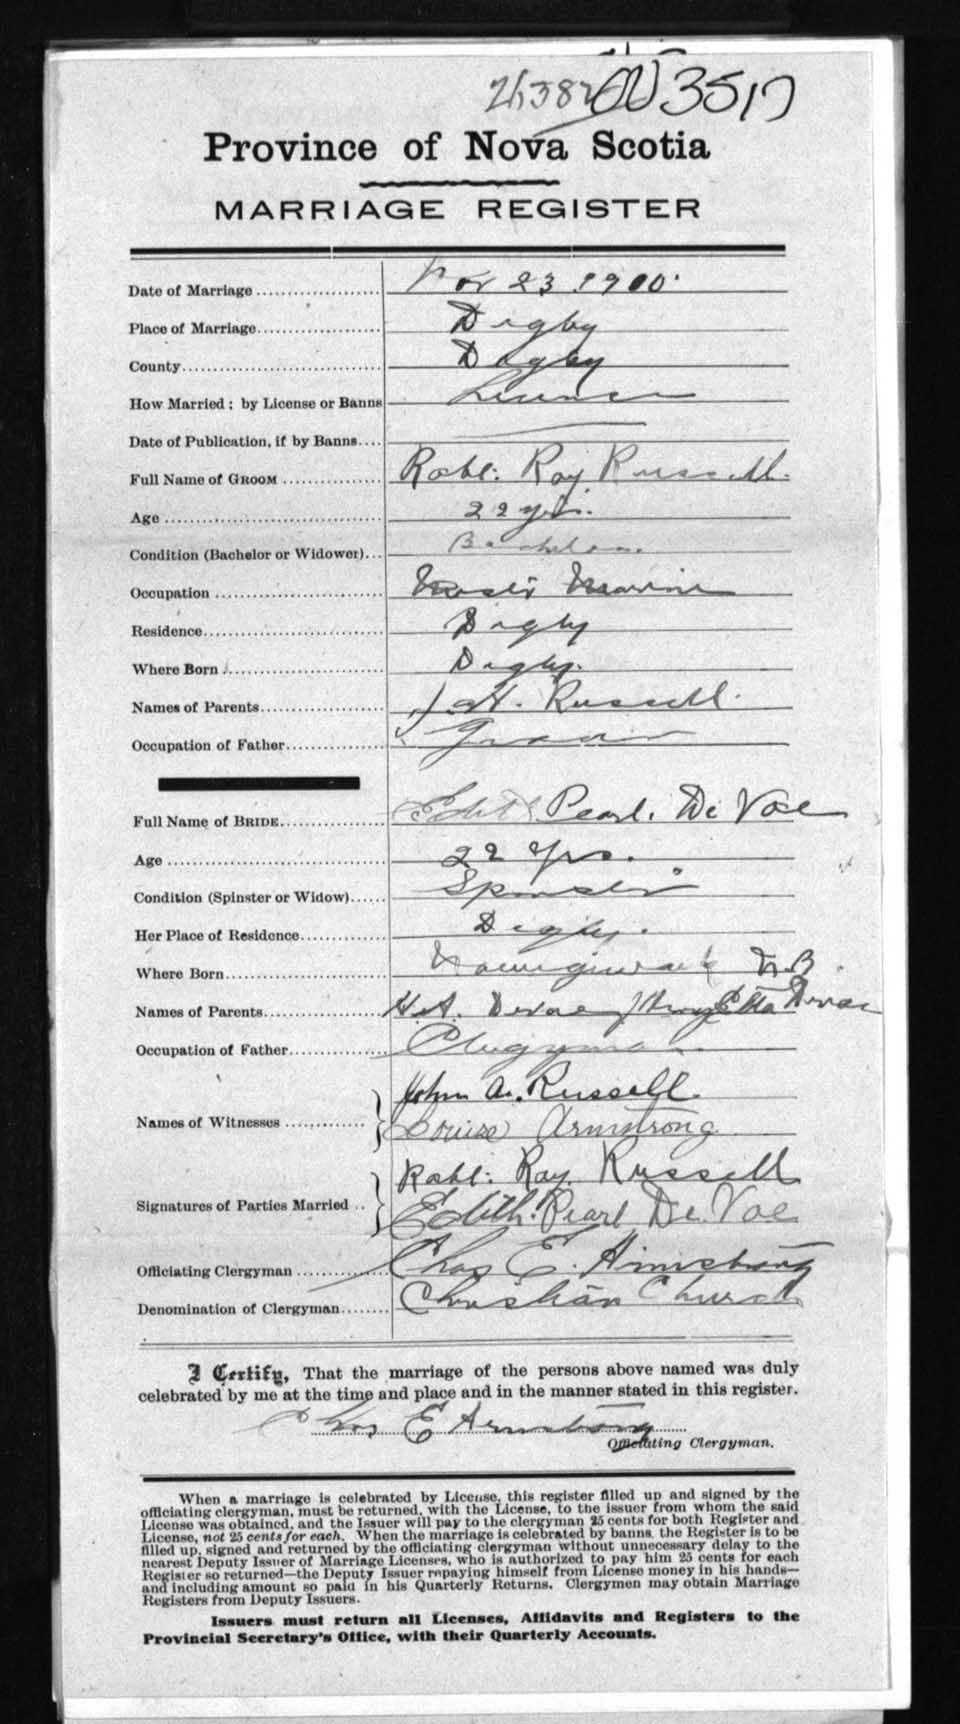 3517
Province of Nova Scotia
MARRIAGE REGISTER
Date of Marriage .................... Nov 23 1900.
Place of Marriage.................... Digby
County................................ Digby
How Married; by License or Banns License
Date of Publication, if by Banns....
Full Name of GROOM ................ Robt. Ray Russell.
Age .................................. 22 yrs.
Condition (Bachelor or Widower)... Bachelor.
Occupation ........................... Master Marine
Residence............................. Digby
Where Born ........................ Digby.
Names of Parents.................... H. Russell.
Occupation of Father................
Full Name of BRIDE................. Edith Pearl. De Voe
Age .................................. 22 yrs.
Condition (Spinster or Widow)...... Spinster
Her Place of Residence.............. Digby.
Where Born.......................... N.B.
Names of Parents................... H.A. Devoe Etta Devoe
Occupation of Father............... Clergyman
John A. Russell.
Names of Witnesses .............
Louise Armstrong
Robt. Ray. Russell
Signatures of Parties Married ..
Edith. Pearl De. Voe
Officiating Clergyman ............. Chas E. Armstrong
Denomination of Clergyman........ Christian Church
I Certify, That the marriage of the persons above named was duly
celebrated by me at the time and place and in the manner stated in this register.
Chas E Armstrong
Officiating Clergyman.
When a marriage is celebrated by License, this register filled up and signed by the
officiating clergyman, must be returned, with the License, to the issuer from whom the said
License was obtained, and the Issuer will pay to the clergyman 25 cents for both Register and
License, not 25 cents for each. When the marriage is celebrated by banns, the Register is to be
filled up, signed and returned by the officiating clergyman without unnecessary delay to the
nearest Deputy Issuer of Marriage Licenses, who is authorized to pay him 25 cents for each
Register so returned—the Deputy Issuer repaying himself from License money in his hands—
and including amount so paid in his Quarterly Returns. Clergymen may obtain Marriage
Registers from Deputy Issuers.
Issuers must return all Licenses, Affidavits and Registers to the
Provincial Secretary's Office, with their Quarterly Accounts.